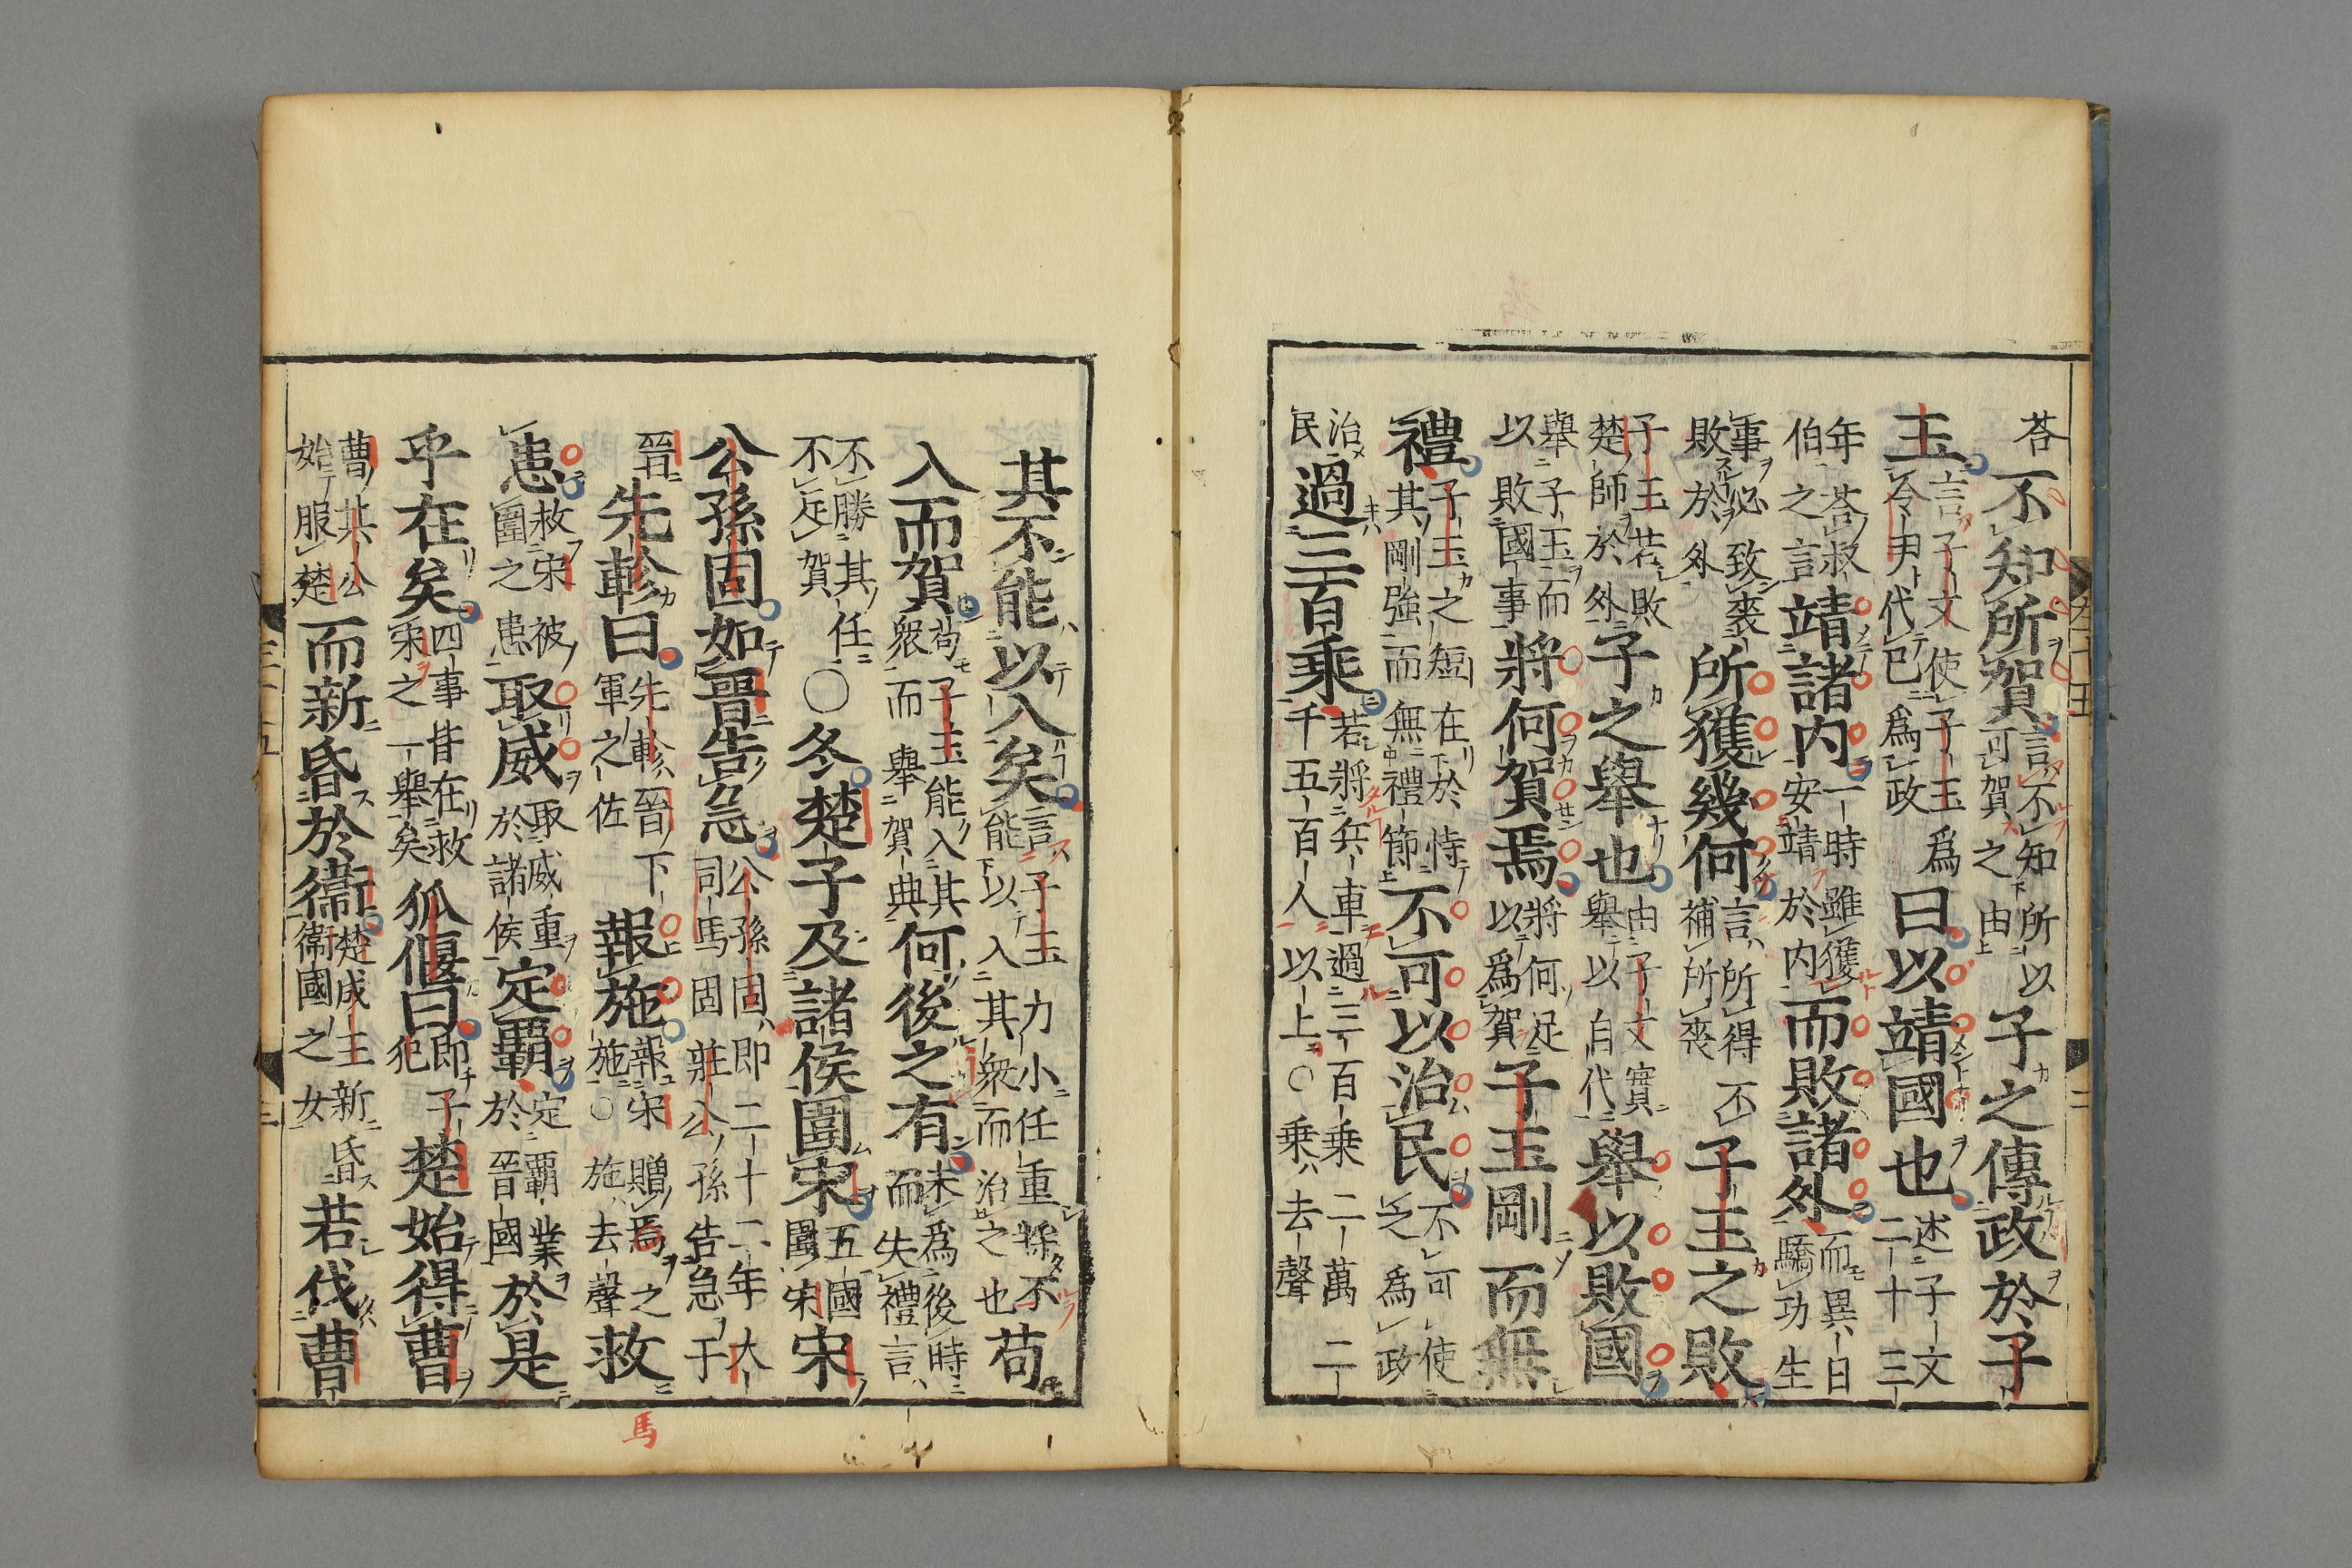 荅不知所賀言不知所以可賀之由子之傳政於子
玉言子文使子玉爲令尹代已爲政曰以靖國也述子文二十三
年荅叔伯之言靖諸内一時雖獲安靖於内而敗諸外而異日驕功生
事必致喪敗於外所獲幾何言所得不補所喪子玉之敗
子玉若敗楚師於外子之舉也由子文實舉以自代舉以敗國
舉子玉而以敗國事將何賀焉將何足以爲賀子玉剛而無
禮子玉之短在於恃其剛強而無禮節不可以治民不可使乏爲政
治民過三百乘若將兵車過三百乘二萬二千五百人以上○乗去聲
其不能以入矣言子玉力小任重將不能以入其衆而治之也苟
入而賀苟子玉能入其衆而舉賀典何後之有未爲後時而失禮言
不勝其任不足賀○冬楚子及諸侯圍宋五國圍宋宋
公孫固如晉告急公孫固即二十二年大司馬固莊公孫告急于
晉先軫曰先軫晉下軍之佐報施報宋贈焉之施○施去聲救
患救宋被圍之患取威取威重於諸侯定霸定霸業於晉國於是
乎在矣四事昔在救宋之一舉矣狐偃曰即子犯楚始得曹
曹其公始服楚而新昏於衞楚成王新昏衞國之女若伐曹
馬